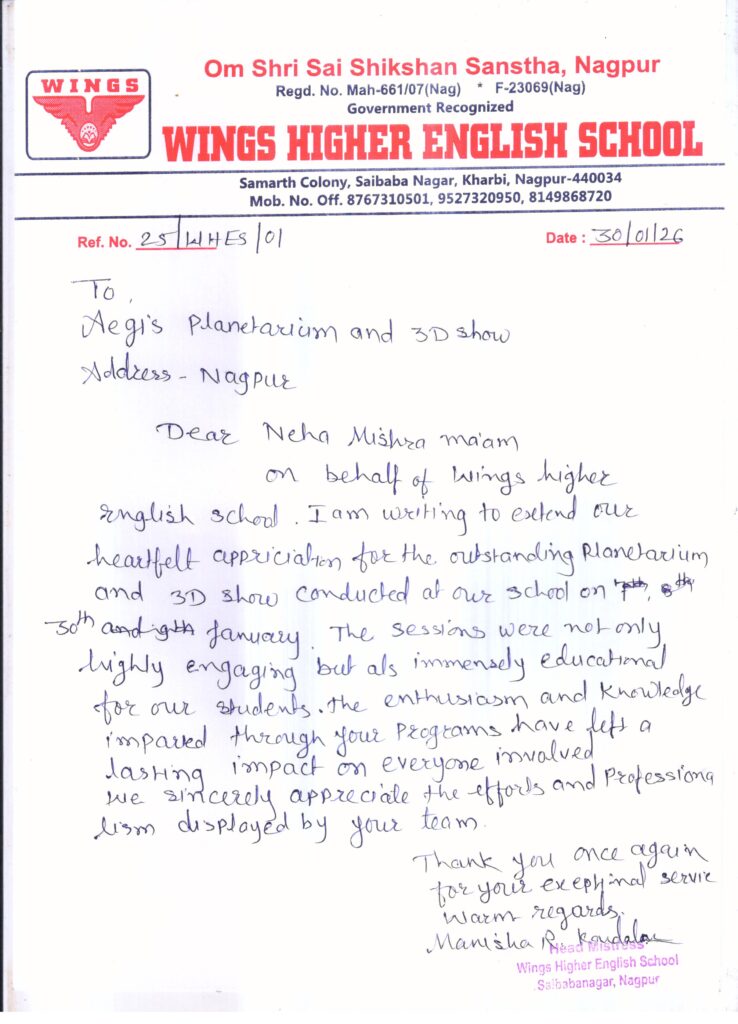 WINGS
Om Shri Sai Shikshan Sanstha, Nagpur
Regd. No. Mah-661/07(Nag) * F-23069(Nag)
Government Recognized
WINGS HIGHER ENGLISH SCHOOL
Samarth Colony, Saibaba Nagar, Kharbi, Nagpur-440034
Mob. No. Off. 8767310501, 9527320950, 8149868720
Ref. No. 25/WHES/01 Date : 30/01/26
To,
Aegis Planetarium and 3D show
Address - Nagpur
Dear Neha Mishra ma'am
on behalf of Wings higher
English school. I am writing to extend our
heartfelt appriciation for the outstanding Planetarium
and 3D show conducted at our school on 7th, 8th
30th and 9th January. The sessions were not only
highly engaging but als immensely educational
for our students. the enthusiasm and knowledge
imparked through your Programs have left a
lasting impact on everyone involved
we sincerely appreciate the efforts and Professiona
lism displayed by your team.
Thank you once again
for your exceptinal servic
warm regards.
Manisha R.
Head Mistress
Wings Higher English School
Saibabanagar, Nagpur